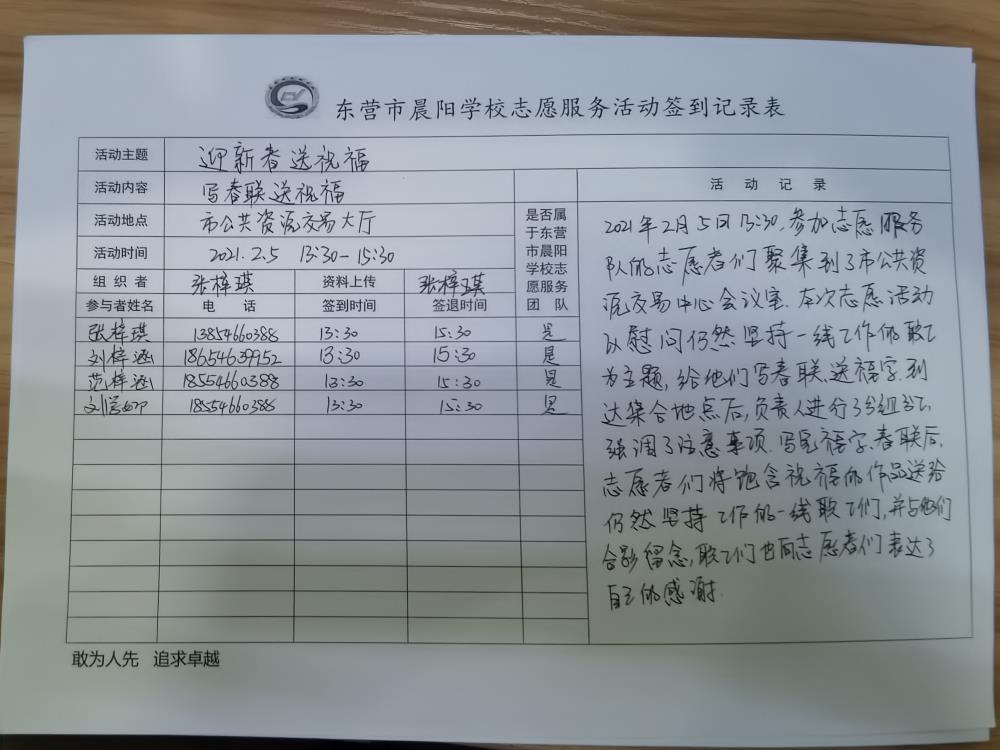 东营市晨阳学校志愿服务活动签到记录表
活动主题 迎新春送祝福
活动内容 写春联送祝福
活动地点 市公共资源交易大厅
活动时间 2021.2.5 13:30-15:30
组织者 张梓琪 资料上传 张梓琪
参与者姓名 电话 签到时间 签退时间
是否属
于东营
市晨阳
学校志
愿服务
团队
张梓琪 13854660388 13:30 15:30 是
刘梓涵 18654639952 13:30 15:30 是
范梓涵 18554660388 13:30 15:30 是
刘 18554660388 13:30 15:30 是
活动记录
2021年2月5日13:30,参加志愿服务
队的志愿者们聚集到了市公共资
源交易中心会议室.本次志愿活动
以慰问仍然坚持一线工作的职工
为主题,给他们写春联、送福字.到
达集合地点后,负责人进行了分组分工,
强调了注意事项.写完福字、春联后,
志愿者们将饱含祝福的作品送给
仍然坚持工作的一线职工们,并与他们
合影留念,职工们也向志愿者们表达了
自己的感谢.
敢为人先 追求卓越